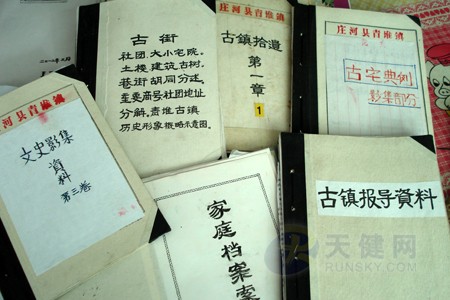 古街
社团。大小宅院。
土楼建筑。古树。
巷街胡同分述。
重要商号社团地址
分解。青堆古镇
历史形象概略示意图。
庄河县青堆鎮
古镇拾遗
第一章
1
庄河县青堆鎮
古宅典例
影集部分
庄河县青堆鎮
文史影集
資料
第三卷
家庭档案索
古镇报导資料
天健网
RUNSKY.COM